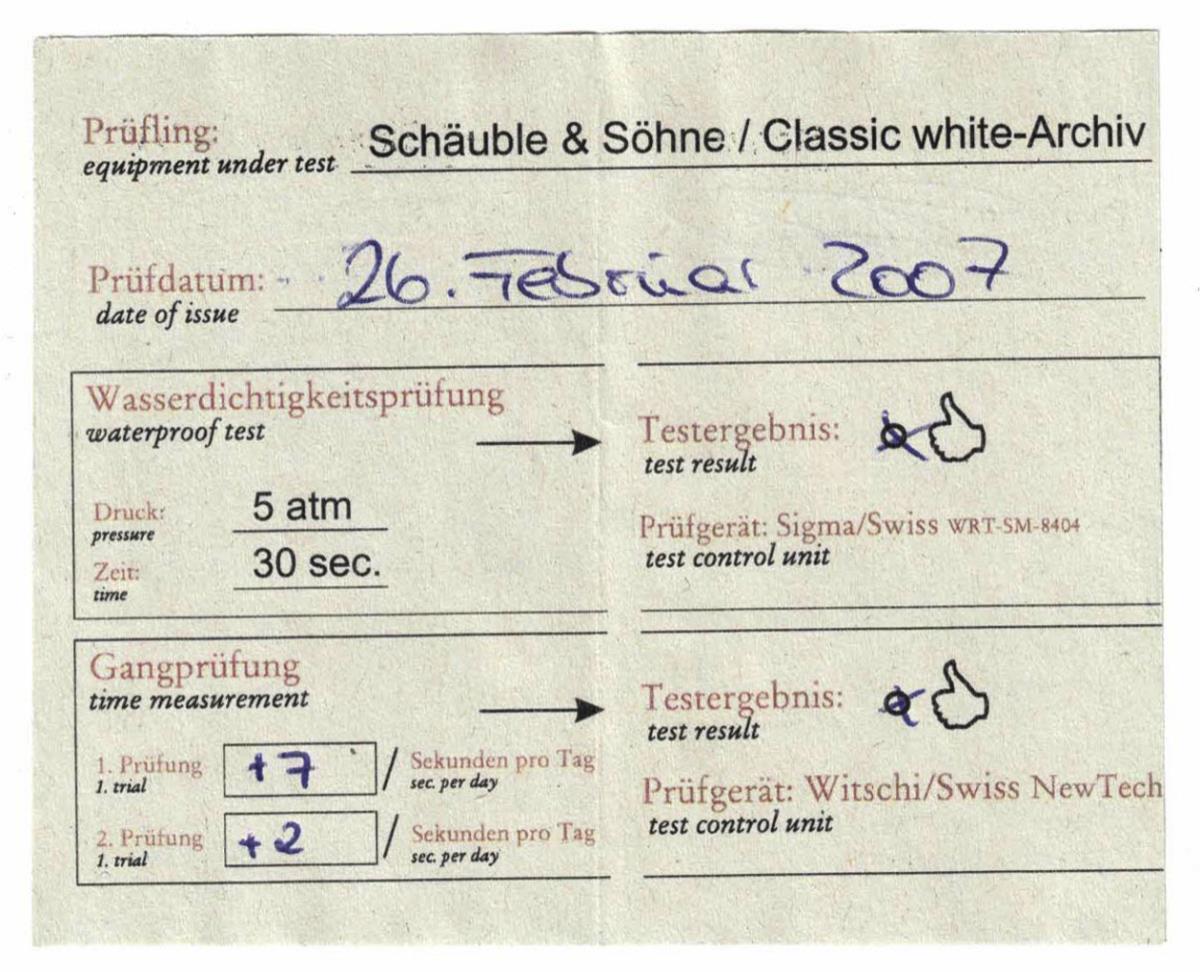 Prüfling: Schäuble & Söhne / Classic white-Archiv
equipment under test
Prüfdatum: 26. Februar 2007
date of issue
Wasserdichtigkeitsprüfung
waterproof test
Druck: 5 atm
pressure
Zeit: 30 sec.
time
Testergebnis:
test result
Prüfgerät: Sigma/Swiss WRT-SM-8404
test control unit
Gangprüfung
time measurement
1. Prüfung +7 / Sekunden pro Tag
1. trial sec. per day
2. Prüfung +2 / Sekunden pro Tag
1. trial sec. per day
Testergebnis:
test result
Prüfgerät: Witschi/Swiss NewTech
test control unit